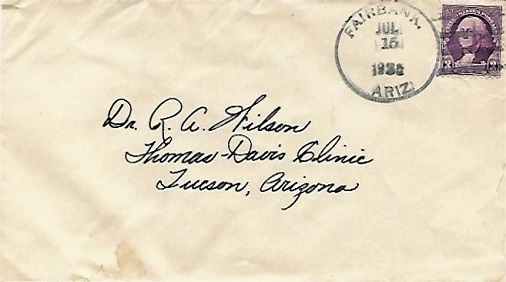 FAIRBANK,
JUL
15
ARIZ
3 3
Dr. R. A. Wilson
Thomas-Davis Clinic
Tucson, Arizona